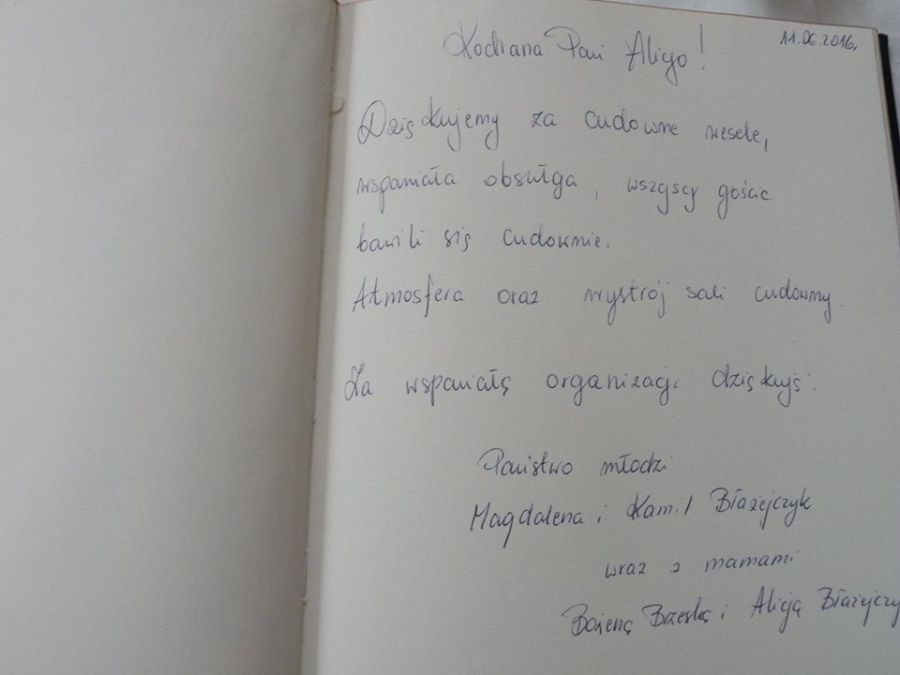 11.06.2016,
Kochana Pani Alicjo!
Dziękujemy za cudowne wesele,
wspaniała obsługa, wszyscy goście
bawili się cudownie.
Atmosfera oraz wystrój sali cudowny.
Za wspaniałą organizację dziękują:
Państwo młodzi
Magdalena i Kamil Błażejczyk
wraz z mamami
Bożeną Brzeską i Alicją Błażejczy